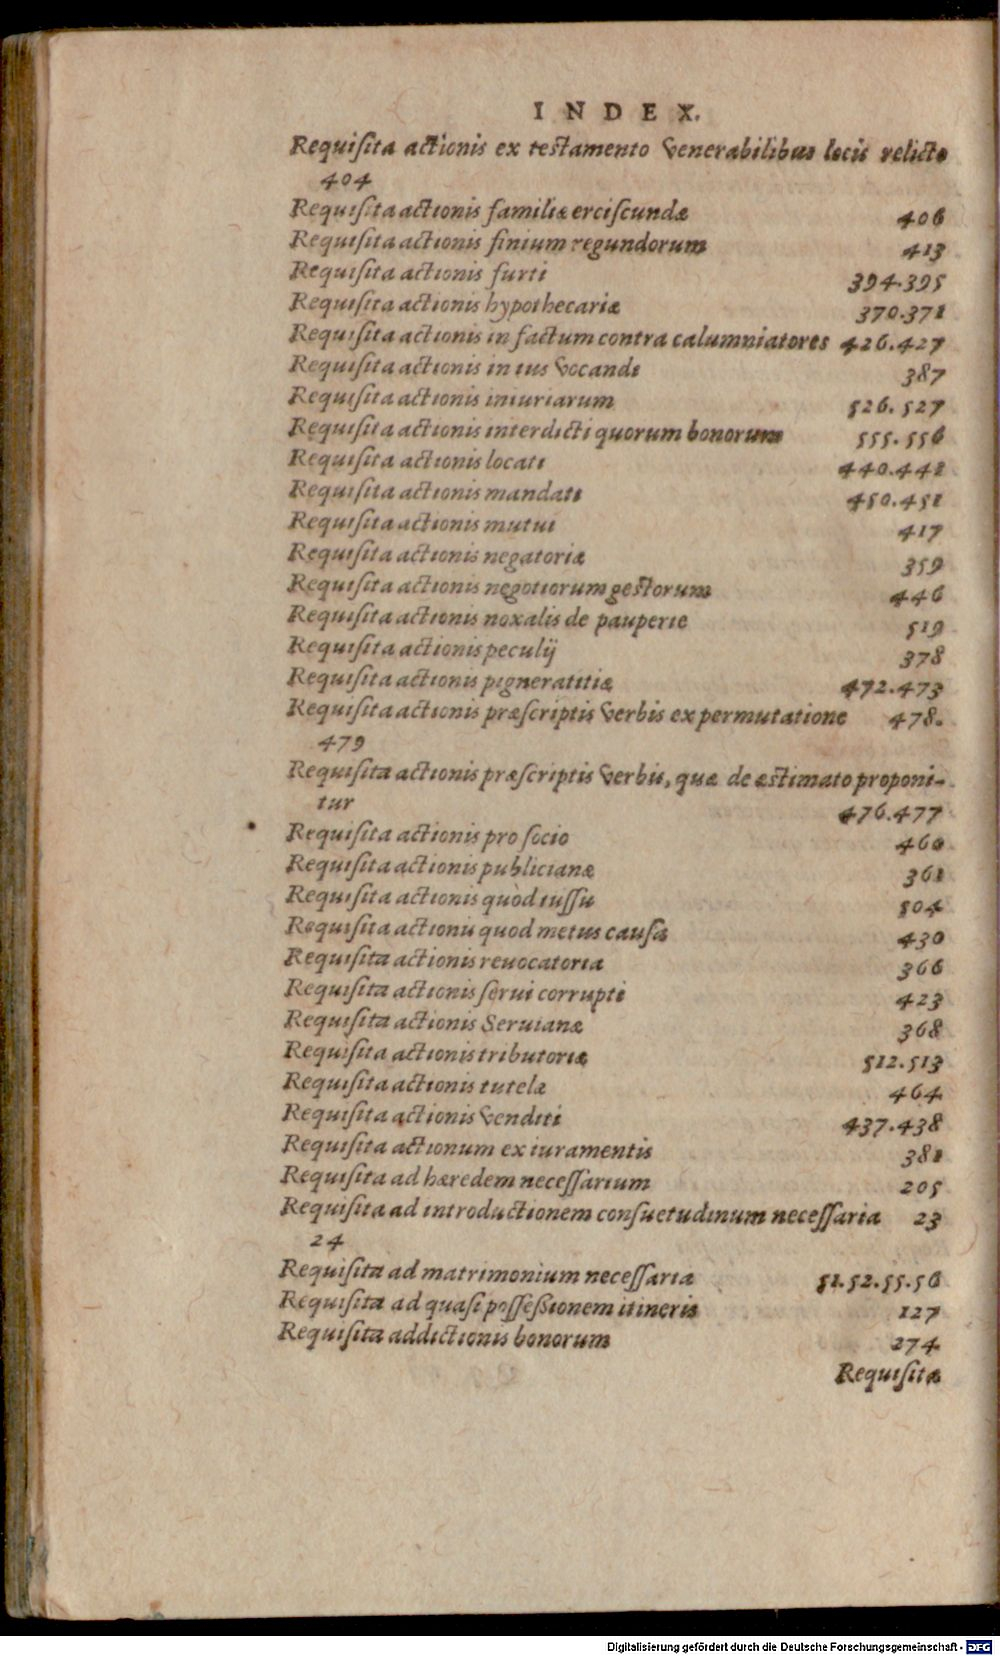 INDEX.
Requiſita actionis ex testamento venerabilibus locis relicto
404
Requiſita actionis familiæ erciſcundæ 406
Requiſita actionis finium regundorum 413
Requiſita actionis furti 394.395
Requiſita actionis hypothecariæ 370.371
Requiſita actionis in factum contra calumniatores 426.427
Requiſita actionis in ius vocandi 387
Requiſita actionis iniuriarum 526.527
Requiſita actionis interdicti quorum bonorum 555.556
Requiſita actionis locati 440.441
Requiſita actionis mandati 450.451
Requiſita actionis mutui 417
Requiſita actionis negatoriæ 359
Requiſita actionis negotiorum gestorum 446
Requiſita actionis noxalis de pauperie 519
Requiſita actionis peculij 378
Requiſita actionis pigneratitiæ 472.473
Requiſita actionis præſcriptis verbis ex permutatione 478.
479
Requiſita actionis præſcriptis verbis, quæ de æstimato proponi-
tur 476.477
Requiſita actionis pro ſocio 460
Requiſita actionis publicianæ 361
Requiſita actionis quòd iuſſu 504
Requiſita actionis quod metus cauſa 430
Requiſita actionis reuocatoria 366
Requiſita actionis ſerui corrupti 423
Requiſita actionis Seruianæ 368
Requiſita actionis tributoriæ 512.513
Requiſita actionis tutelæ 464
Requiſita actionis venditi 437.438
Requiſita actionum ex iuramentis 381
Requiſita ad hæredem neceſſarium 205
Requiſita ad introductionem conſuetudinum neceſſaria 23
24
Requiſita ad matrimonium neceſſaria 51.52.55.56
Requiſita ad quaſi poſſeßionem itineris 127
Requiſita addictionis bonorum 274
Requiſitæ
Digitalisierung gefördert durch die Deutsche Forschungsgemeinschaft - DFG